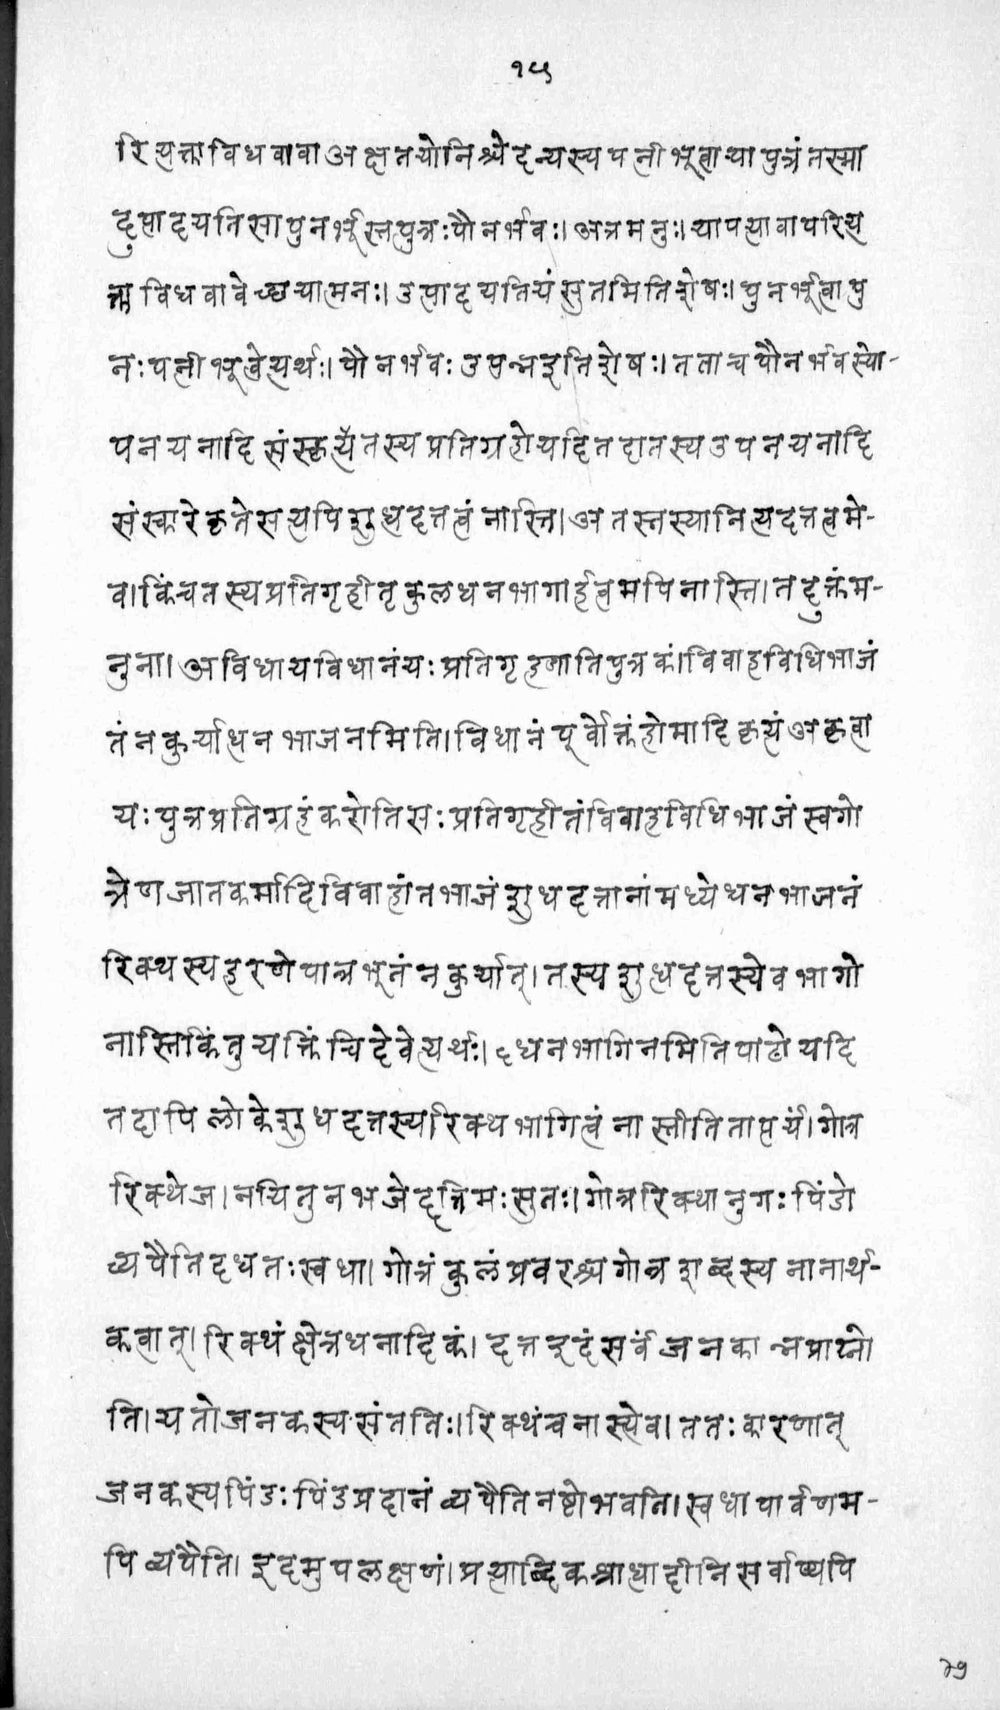 १५
रित्यक्ताविधवावाअक्षतयोनिश्चेदन्यस्यपत्नीभूत्वायापुत्रंतस्मा
दुत्पादयतिसापुनर्भूस्तत्पुत्रःपौनर्भवः।अत्रमनुः।यापत्यावापरित्य
क्ताविधवावेच्छयात्मनः।उत्पादयतियंसुतमितिशेषः।पुनर्भूत्वापु
नःपत्नीभूत्वेत्यर्थः।पौनर्भवःउत्पन्नइतिशेषः।तताचपौनर्भवस्यो-
पनयनादिसंस्कृत्यैतस्यप्रतिग्रहोयदितदातस्यउपनयनादि
संस्कारेकृतेसत्यपिशुध्ददत्तत्वंनास्ति।अतस्तस्यानित्यदत्तत्वमे-
व।किंचतस्यप्रतिगृहीतृकुलधनभागार्हत्वमपिनास्ति।तदुक्तंम-
नुना।अविधायविधानंयःप्रतिगृह्णातिपुत्रकं।विवाहविधिभाजं
तंनकुर्याध्दनभाजनमिति।विधानंपूर्वोक्तंहोमादिकृत्यंअकृत्वा
यःपुत्रप्रतिग्रहंकरोतिसःप्रतिगृहीतंविवाहविधिभाजंस्वगो
त्रेणजातकर्मादिविवाहांतभाजंशुधदत्तानांमध्येधनभाजनं
रिक्थस्यहरणेपात्रभूतंनकुर्यात्।तस्यशुध्ददत्तस्येवभागो
नास्तिकिंतुयत्किंचिदेवेत्यर्थः।धनभागिनमितिपाठोयदि
तदापिलोकेशुधदत्तस्यरिक्थभागित्वंनास्तीतितात्पर्यं।गोत्र
रिक्थेज।नयितुनभजेदृत्त्रिमःसुतः।गोत्ररिक्थानुगःपिंडो
व्यपैतिदधतःस्वधा।गोत्रंकुलंप्रवरश्चगोत्रशब्दस्यनानार्थ-
कत्वात्।रिक्थंक्षेत्रधनादिकं।दत्तइदंसर्वंजनकान्नप्राप्नो
ति।यतोजनकस्यसंततिः।रिक्थंचनास्त्येव।ततःकारणात्
जनकस्यपिंडःपिंडप्रदानंव्यपैतिनष्टोभवति।स्वधापार्वणम-
पिव्यपैति।इदमुपलक्षणं।प्रत्याब्दिकश्राध्दादीनिसर्वाण्यपि
२९